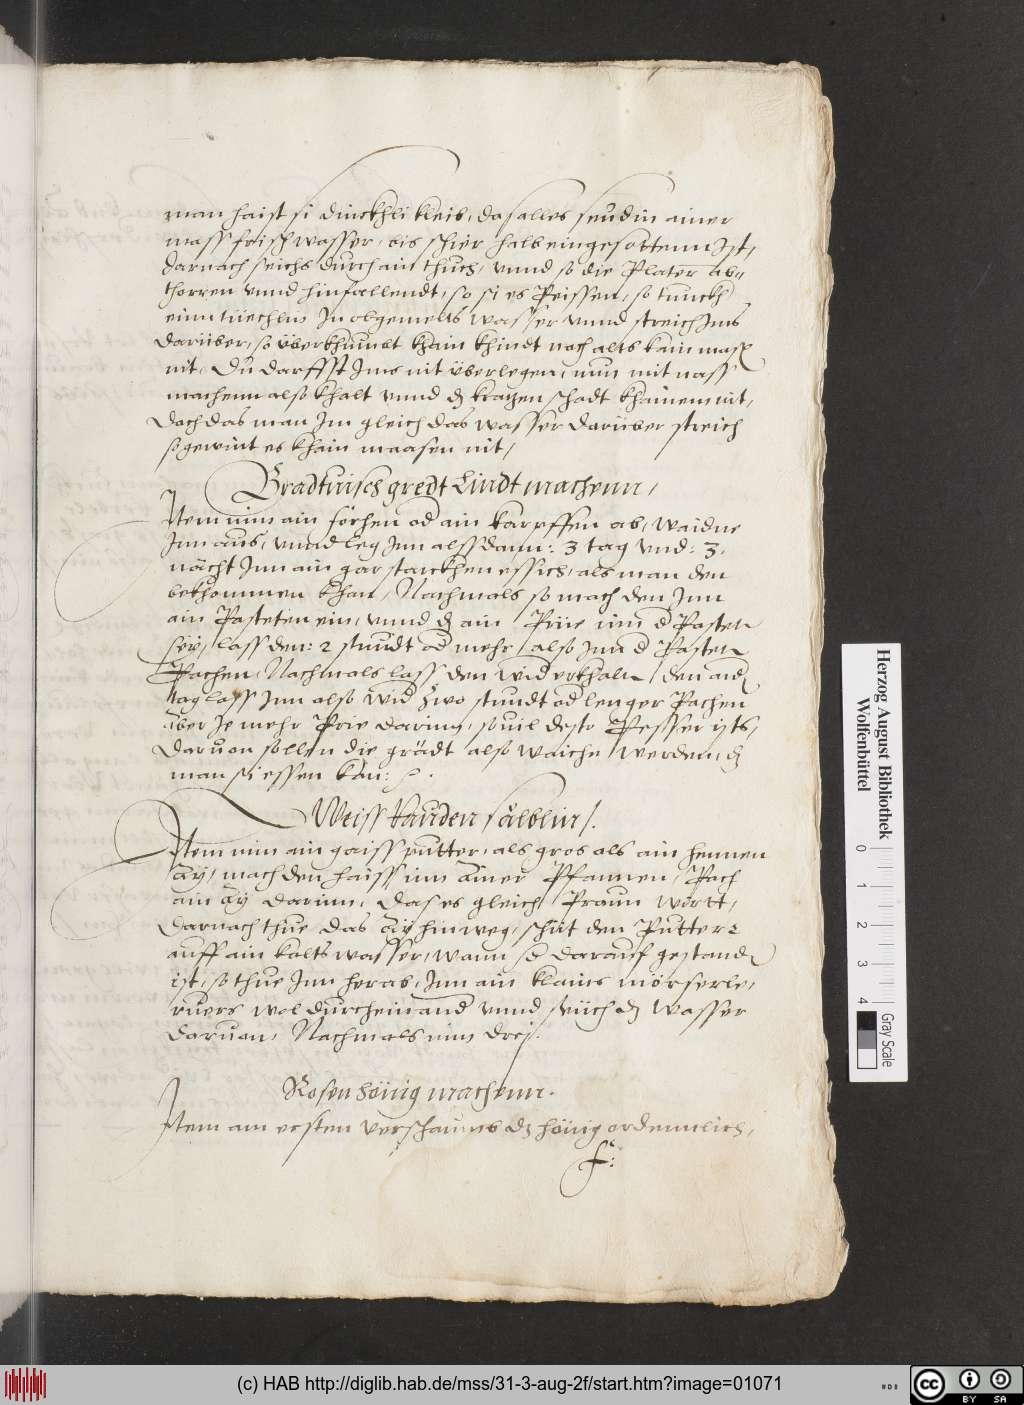 man haist si dinckhli kleib, das alles seud in ainer
mass frisch wasser, bis schier halb eingesottenn Ist,
darnach seichs durch ain thuch, vnnd so die Plater ab-
thorren vnnd hinfallendt, so si es Peissen, so tunckh
einn tüechlin In obgemelts wasser vnnd streich Ims
darüber, so überkhumbt khain khindt noch alts kain mass
nit, Du darffst Ims nit überlegen, nun mit nass
machenn also khalt vnnd dz kratzen schadt khainem nit,
Doch das man Im gleich das wasser darüber streich
so gewint es khain maasen nit,
Bradtuisch gredt Lindt machenn,
Item nim ain förhen od ain karpffen ab, waidne
Inn aus, vnnd leg Inn alssdann: 3 tag vnd: 3.
nächt Inn ain gar starckhen essich, als man den
bekhommen khan, Nachmals so mach den Inn
ain Pasteten ein, vnnd dz ain Prüe inn d Pasteten
seÿ, lass den: 2 stundt od mehr also Inn d Pasteten
Pachen, Nachmals lass den wider erkhalten, den andn
tag lass Inn also wid zwo stundt od lenger Pachen
aber Je mehr Prie darinn, souil desto Pesser ists,
Daruon sollen die grädt also waich werden, dz
man si essen kan:
Weiss kunden sälblin.
Item nim ain gaiss putter, als gros als ain hennen
aÿ, mach den haiss inn ainer Pfannen, Pach
ain aÿ darinn, das es gleich Praun wördt,
Darnach thue das aÿ hinweg, schüt den Putter
auff ain kalts wasser, wann er darauf gestanden
ist, so thue Inn herab, Inn ain klains mörserle,
ruers wol durcheinand vnnd seich dz wasser
daruon, Nachmals nim drei.
Rosenhönig machenn.
Item am ersten verschaumb dz hönig ordennlich,
Herzog August Bibliothek
Wolfenbüttel
0 1 2 3 4
Gray Scale
(c) HAB http://diglib.hab.de/mss/31-3-aug-2f/start.htm?image=01071
cc BY SA